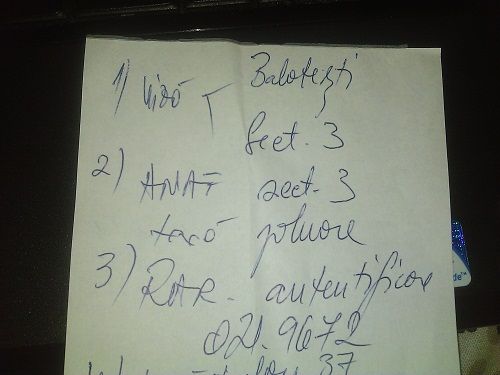 1) Viză Balotești
Sect. 3
2) ANAF sect. 3
taxă poluare
3) RAR - autentificare
021.9672
37